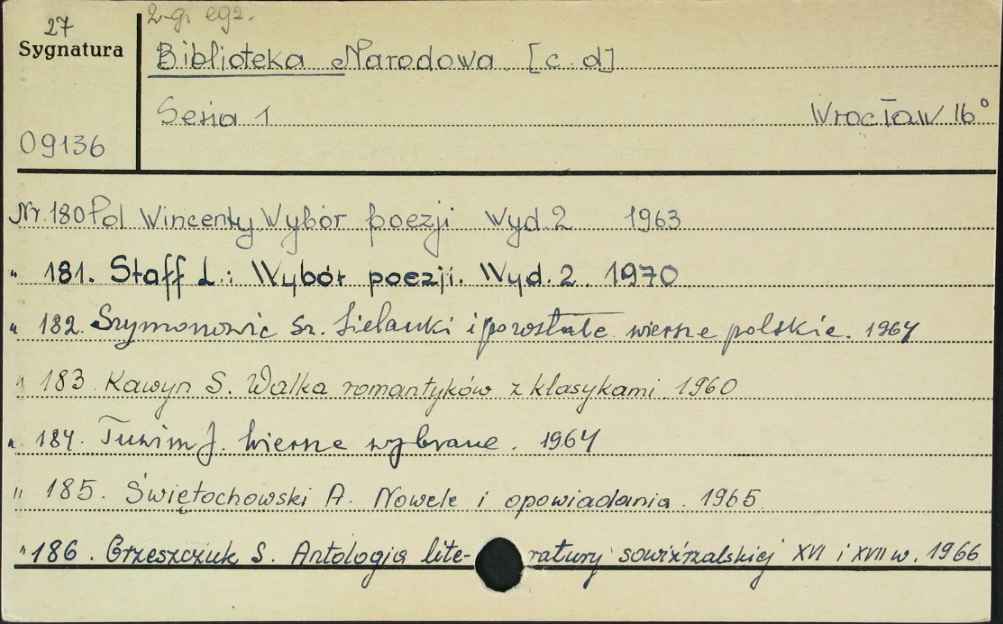 27
2-gi egz.
Sygnatura
Biblioteka Narodowa [c.d]
Seria 1 Wrocław 16°
09136
Nr. 180 Pol Wincenty Wybór poezji Wyd. 2 1963
" 181. Staff L.: Wybór poezji. Wyd. 2. 1970
" 182. Szymonowic Sz. Sielanki i pozostałe wiersze polskie. 1964
" 183. Kawyn S. Walka romantyków z klasykami. 1960
" 184. Tuwim J. Wiersze wybrane. 1964
" 185. Świętochowski A. Nowele i opowiadania. 1965
" 186. Grzeszczuk S. Antologia lite-ratury sowiźrzalskiej XVI i XVII w. 1966